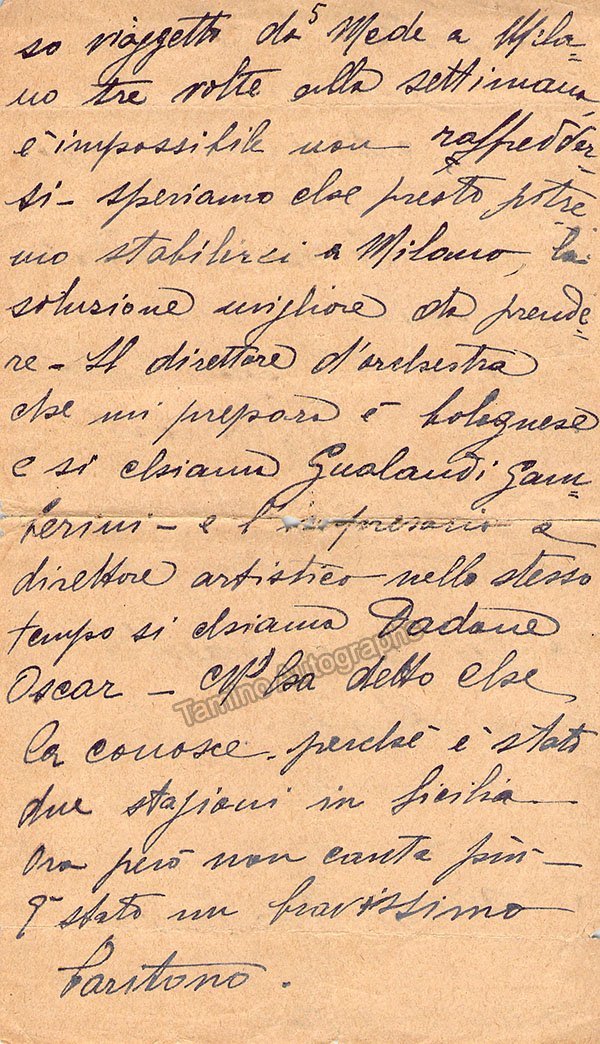 so viaggetto da Mede a Mila=
no tre volte alla settimana,
è impossibile non raffredder-
si - speriamo che presto potre=
mo stabilirci a Milano, la
soluzione migliore da prende=
re - Il direttore d'orchestra
che mi prepara è bolognese
e si chiama Gualandi Gam=
berini - e l'impresario e
direttore artistico nello stesso
tempo si chiama Dadone
Oscar - Mi ha detto che
La conosce perché è stato
due stagioni in Sicilia -
Ora però non canta più -
È stato un bravissimo
baritono.
Tamino Autographs